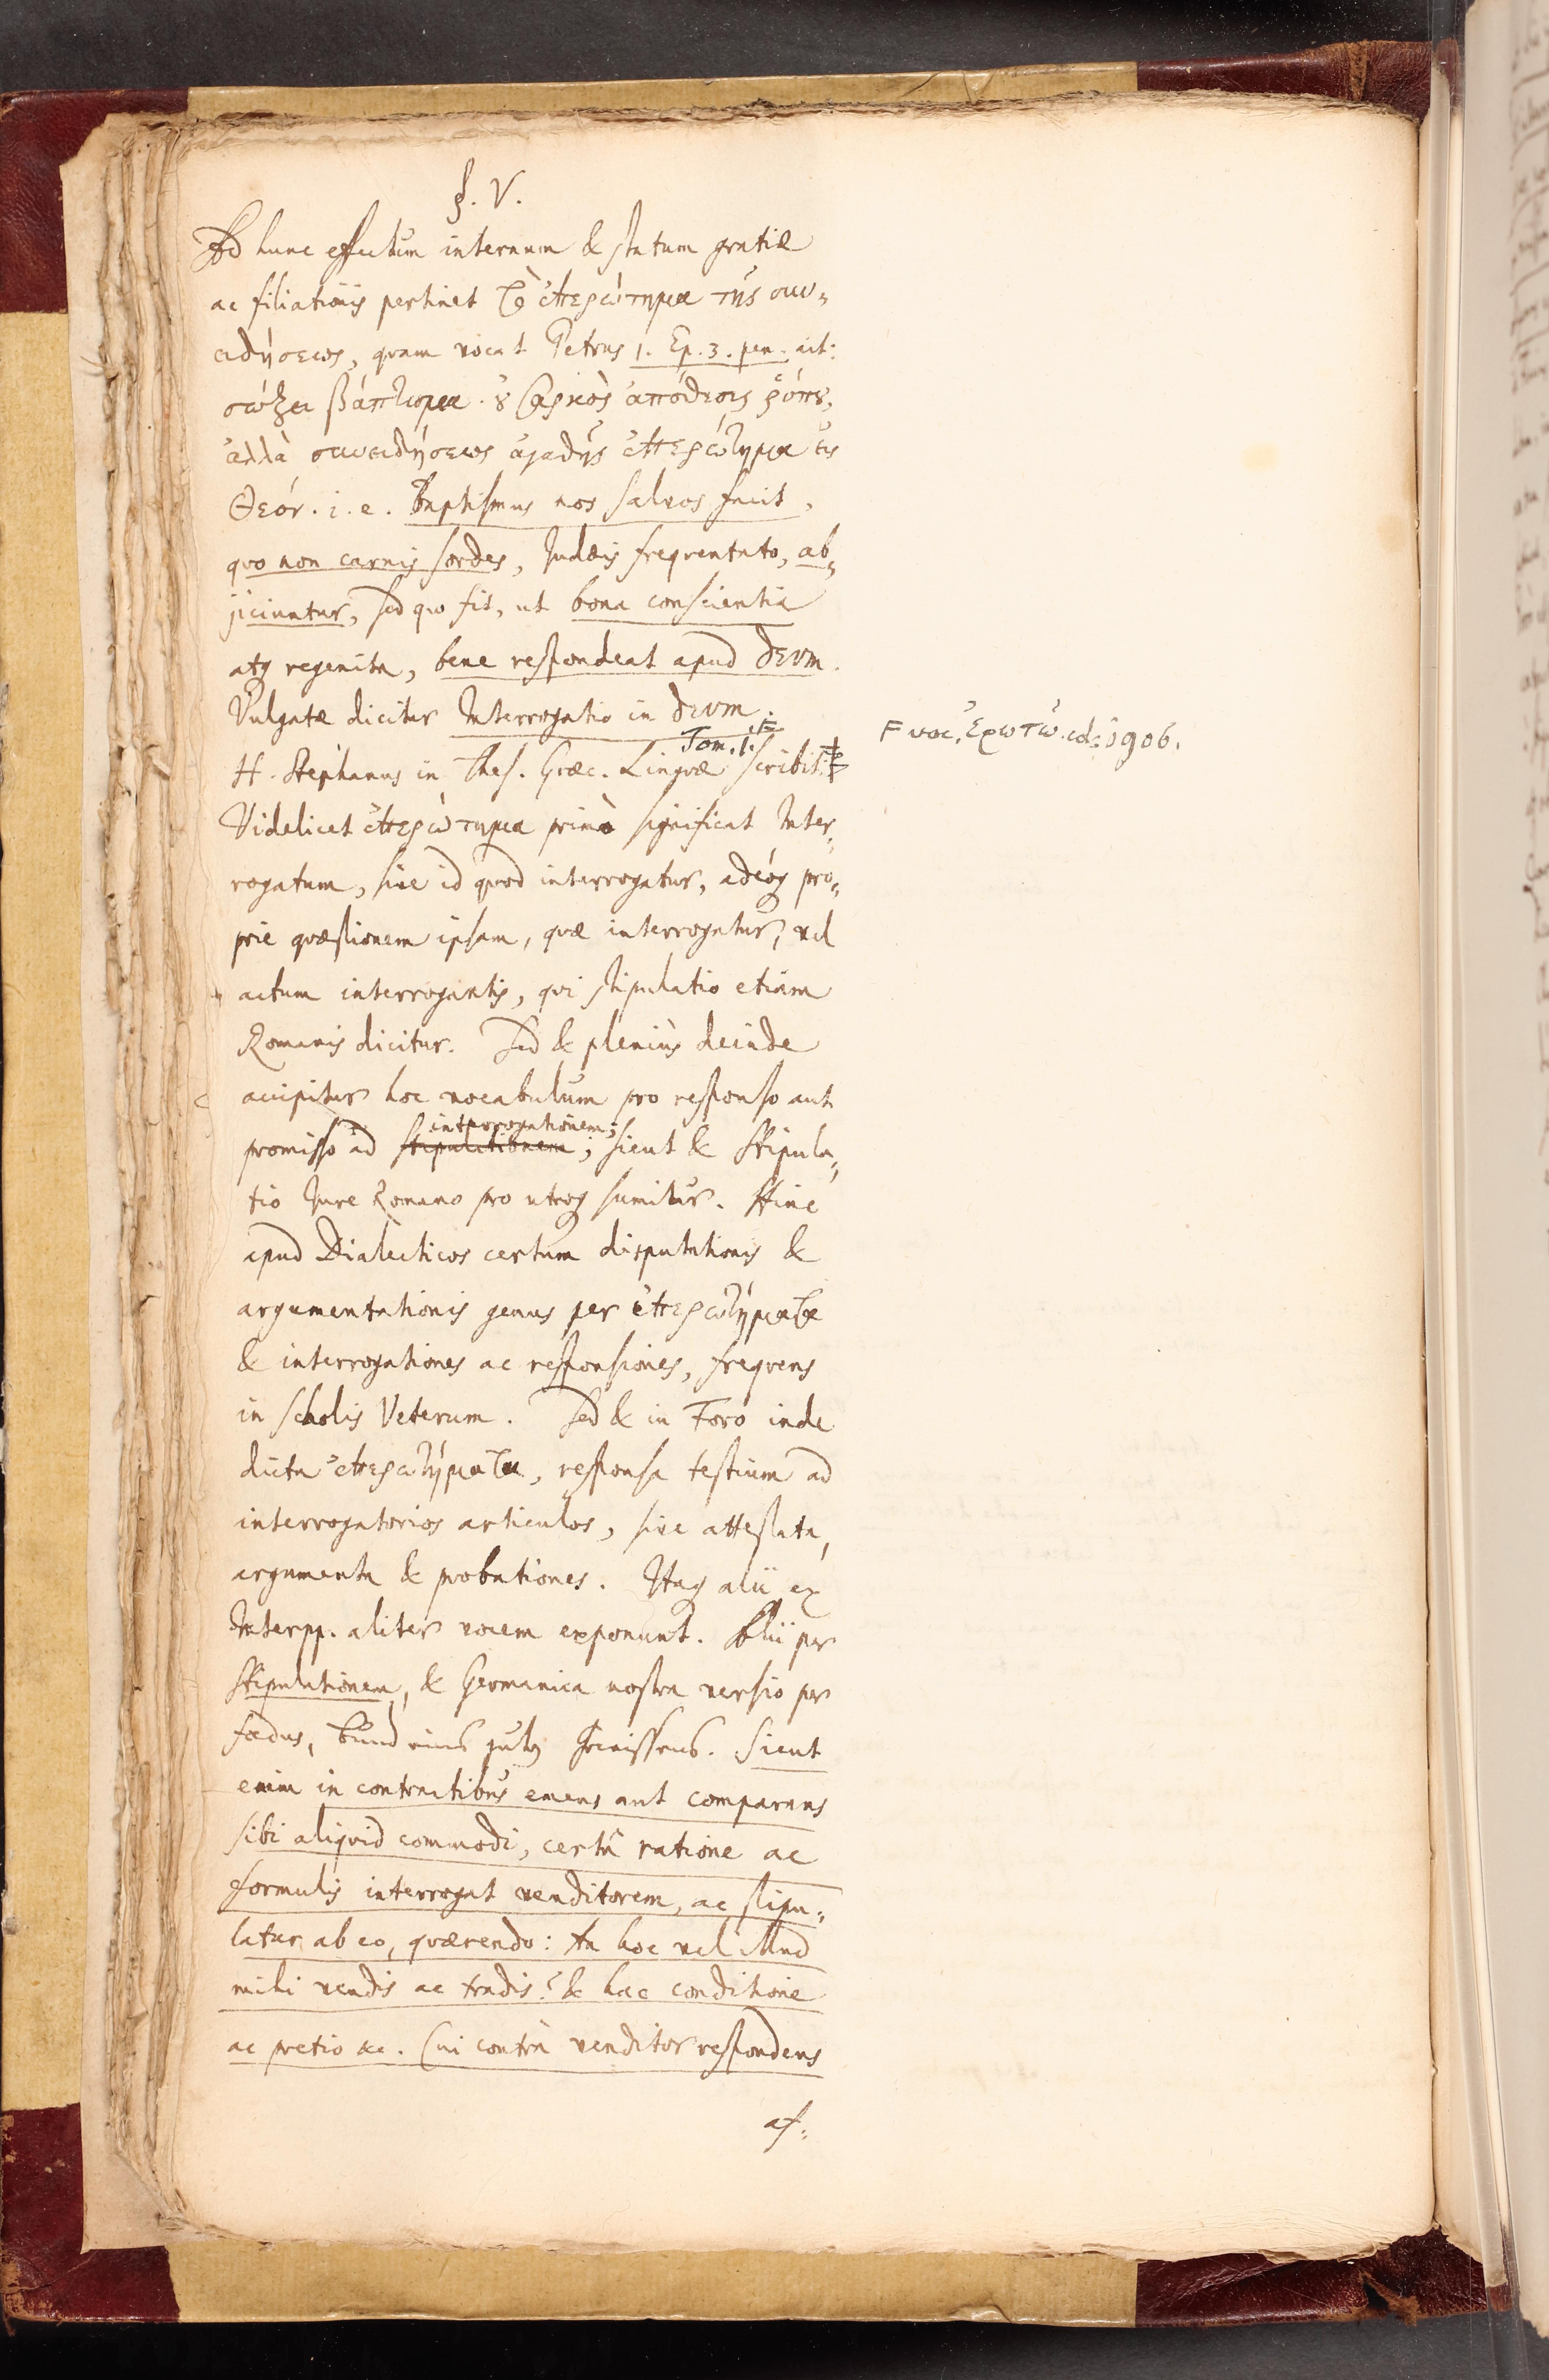 §. V.
Ad hunc effectum internum & statum gratiæ
ac filiationis pertinet τὸ ἐπερώτημα τῆς συν=
ειδήσεως, quam vocat Petrus 1. Ep. 3. pen. ait:
σώζει βάπτισμα. ȣ σαρκὸς ἀπόθεσις ῥύπȣ,
ἀλλὰ συνειδήσεως ἀγαθῆς ἐπερώτημα εἰς
Θεόν. i. e. Baptismus nos salvos facit,
quo non carnis sordes, Judæis frequentato, ab=
jiciuntur, sed quo fit, ut bona conscientia
atq regenita, bene respondeat apud DEVM.
Vulgatæ dicitur Interrogatio in DEVM.
H. Stephanus in Thes. Græc. Linguæ Tom. 1. scribit:
F voc. Ἐρωτῶ. col. 1906.
Videlicet ἐπερώτημα primò significat Inter=
rogatum, sive id quod interrogatur, adeóq pro=
prie quæstionem ipsam, quæ interrogatur, vel
actum interrogantis, qvi stipulatio etiam
Romanis dicitur. Sed & pleniùs deinde
accipitur hoc vocabulum pro responso aut
promisso ad stipulationem interrogationem; sicut & Stipula=
tio Jure Romano pro utroq sumitur. Hinc
apud Dialecticos certum disputationis &
argumentationis genus per ἐπερωτήματα
& interrogationes ac responsiones, frequens
in scholis Veterum. Sed & in Foro inde
dicta ἐπερωτήματα, responsa testium ad
interrogatorios articulos, sive attestata,
argumenta & probationes. Itaq alii ex
Interpp. aliter vocem exponunt. Alii per
Stipulationem, & Germanica nostra versio per
fœdus, Bund eines guten Gewissens. Sicut
enim in contractibus emens aut comparans
sibi aliquid commodi, certâ ratione ac
formulis interrogat venditorem, ac stipu=
latur ab eo, quærendo: An hoc vel illud
mihi vendis ac tradis? & hac conditione
ac pretio &c. Cui contrà venditor respondens
as=